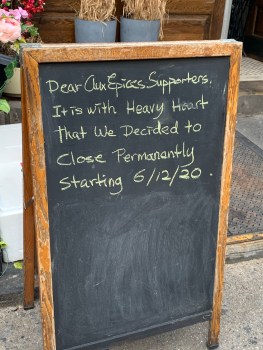 Dear Aux Epices Supporters,
It is with Heavy Heart
that We Decided to
Close Permanently
Starting 6/12/20.